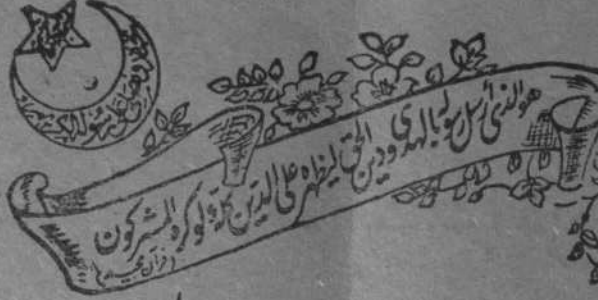 هو الذی أرسل رسوله بالهدی و دین الحق لیظهره علی الدین کله و لو کره المشرکون
(قرآن مجید)